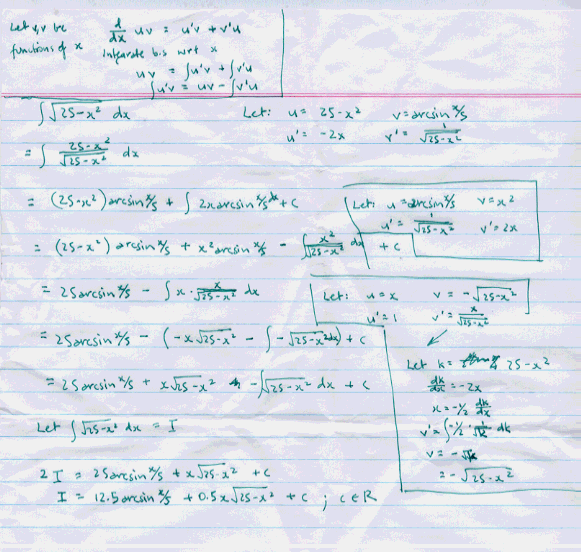 Let u,v be functions of x
d/dx uv = u'v + v'u
Integrate b.s wrt x
uv = ∫u'v + ∫v'u
∫u'v = uv - ∫v'u
∫√(25-x²) dx
Let: u = 25-x² v = arcsin x/5
u' = -2x v' = 1/√(25-x²)
= ∫ (25-x²)/√(25-x²) dx
= (25-x²) arcsin x/5 + ∫ 2x arcsin x/5 dx + c
Let: u = arcsin x/5 v = x²
u' = 1/√(25-x²) v' = 2x
= (25-x²) arcsin x/5 + x² arcsin x/5 - ∫ x²/√(25-x²) dx + c
= 25 arcsin x/5 - ∫ x · x/√(25-x²) dx
Let: u = x v = -√(25-x²)
u' = 1 v' = x/√(25-x²)
= 25 arcsin x/5 - (-x√(25-x²) - ∫ -√(25-x²) dx) + c
= 25 arcsin x/5 + x√(25-x²) - ∫√(25-x²) dx + c
Let k = 25-x²
dk/dx = -2x
x = -1/2 dk/dx
v = ∫ -1/2 · 1/√k dk
v = -√k
= -√(25-x²)
Let ∫√(25-x²) dx = I
2I = 25 arcsin x/5 + x√(25-x²) + c
I = 12.5 arcsin x/5 + 0.5x√(25-x²) + c ; c∈R